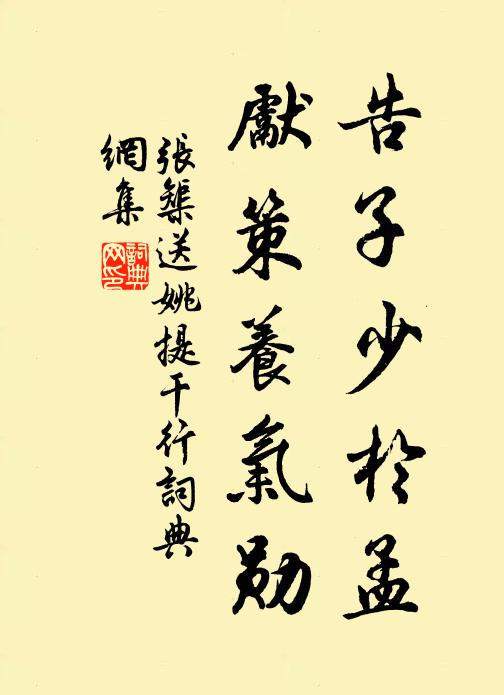 告子少於孟
獻策養氣勋
張榘送姚提干行詞典
網集
詞典网印